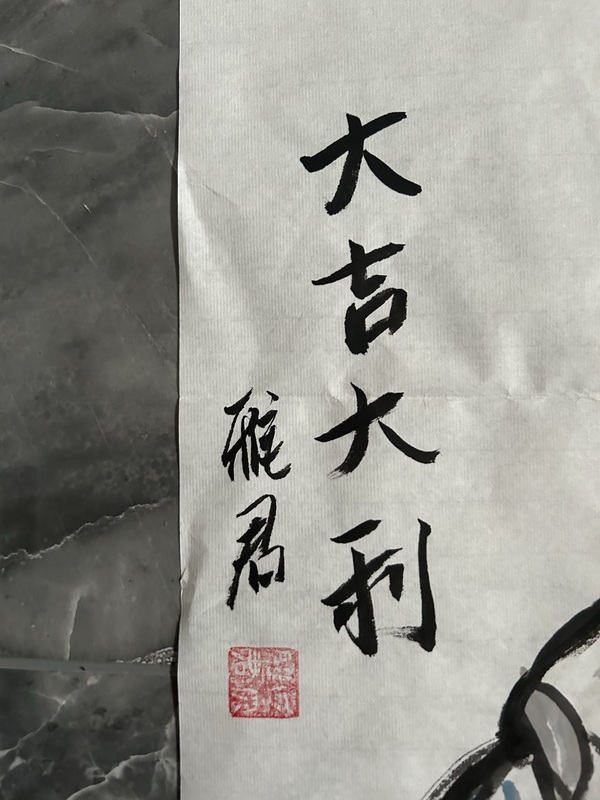 大吉大利
雅君